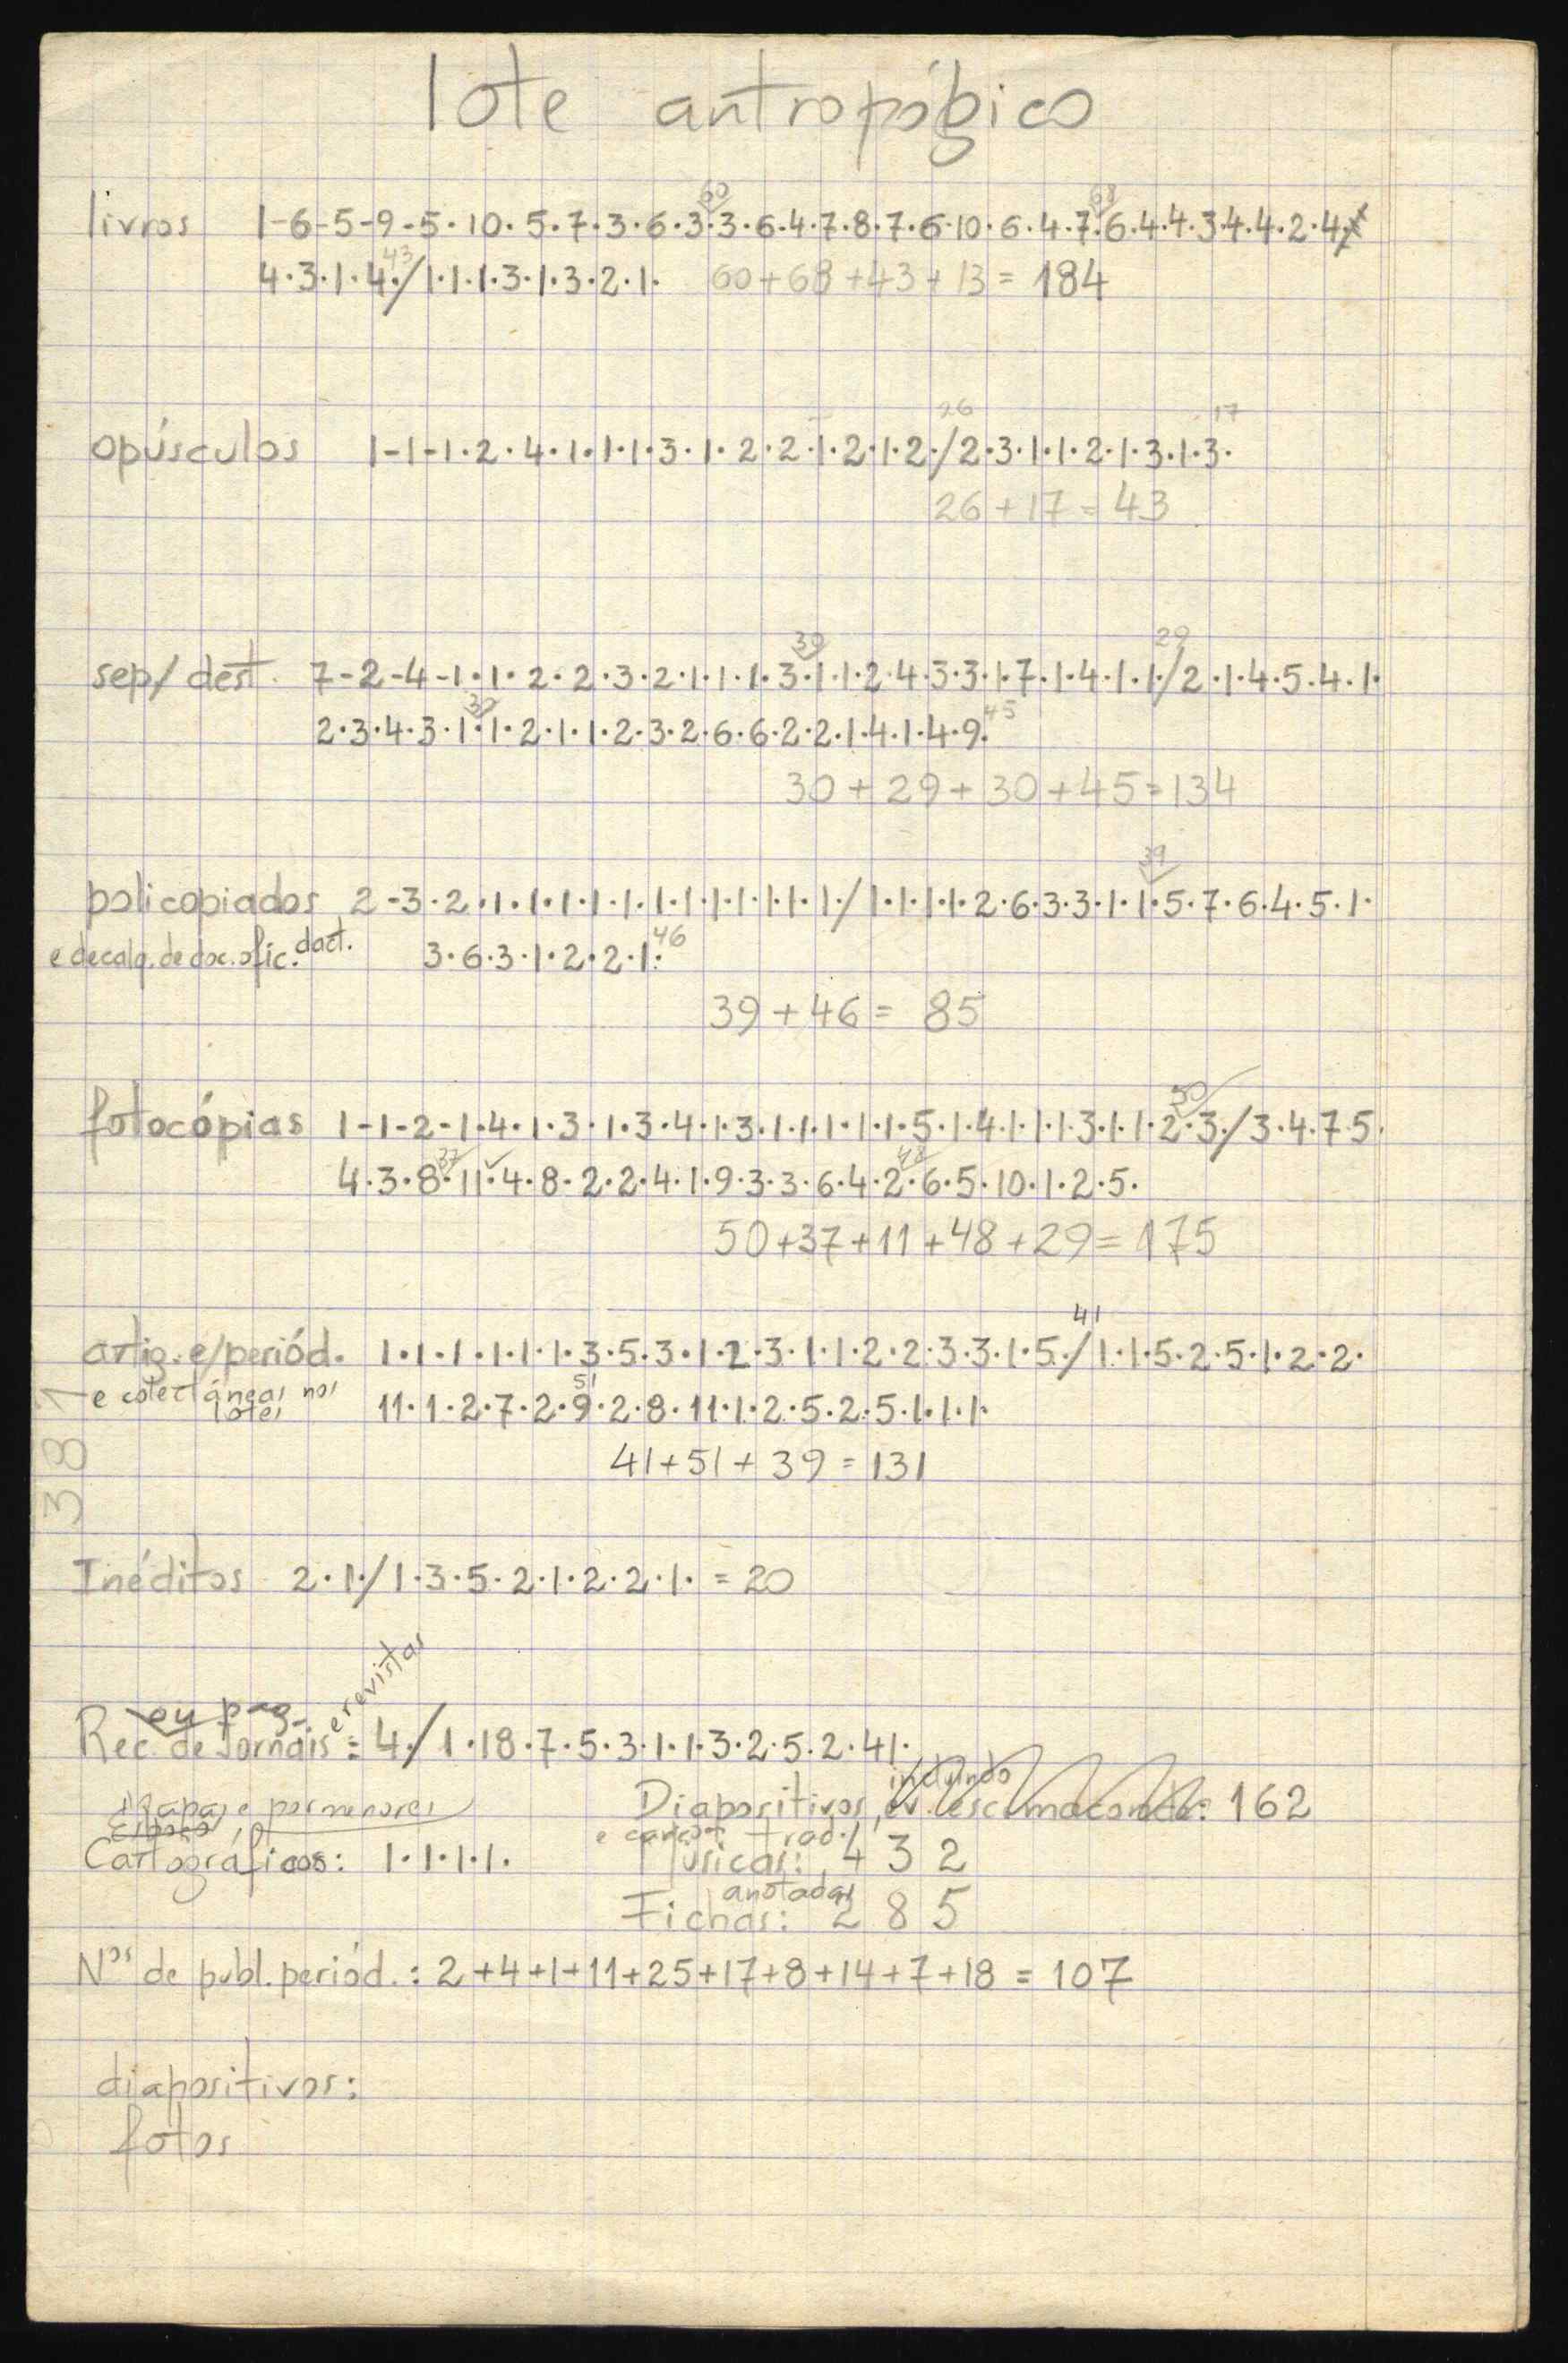 lote antropógico
60 68
livros 1-6-5-9-5·10·5·7·3·6·3·3·6·4·7·8·7·6·10·6·4·7·6·4·4·3·4·4·2·4·
43
4·3·1·4·/1·1·1·3·1·3·2·1· 60+68+43+13= 184
26 17
opúsculos 1-1-1·2·4·1·1·1·3·1·2·2·1·2·1·2·/2·3·1·1·2·1·3·1·3·
26+17=43
30 29
sep/dest. 7-2-4-1·1·2·2·3·2·1·1·1·3·1·1·2·4·3·3·1·7·1·4·1·1·/2·1·4·5·4·1·
30 45
2·3·4·3·1·1·2·1·1·2·3·2·6·6·2·2·1·4·1·4·9·
30+29+30+45=134
39
policopiados 2-3·2·1·1·1·1·1·1·1·1·1·1·1·1/1·1·1·1·2·6·3·3·1·1·5·7·6·4·5·1·
e decalq. de doc. ofic. dact. 3·6·3·1·2·2·1· 46
39+46= 85
50
fotocópias 1-1-2-1·4·1·3·1·3·4·1·3·1·1·1·1·1·5·1·4·1·1·1·3·1·1·2·3·/3·4·7·5·
37 48
4·3·8·11·4·8·2·2·4·1·9·3·3·6·4·2·6·5·10·1·2·5·
50+37+11+48+29=175
41
artig. e/periód. 1·1·1·1·1·1·3·5·3·1·2·3·1·1·2·2·3·3·1·5·/1·1·5·2·5·1·2·2·
51
e colectâneas nos lotes 11·1·2·7·2·9·2·8·11·1·2·5·2·5·1·1·1·
41+51+39=131
381
Inéditos 2·1·/1·3·5·2·1·2·2·1· = 20
ou pag. e revistas
Rec. de Jornais: 4·/1·18·7·5·3·1·1·3·2·5·2·41·
incluindo
Diapositivos, 162
Mapas e pormenores
trad./
Cartográficos: 1·1·1·1· Músicas: 432
anotadas
Fichas: 285
Nos de publ. periód.: 2+4+1+11+25+17+8+14+7+18 = 107
diapositivos:
fotos